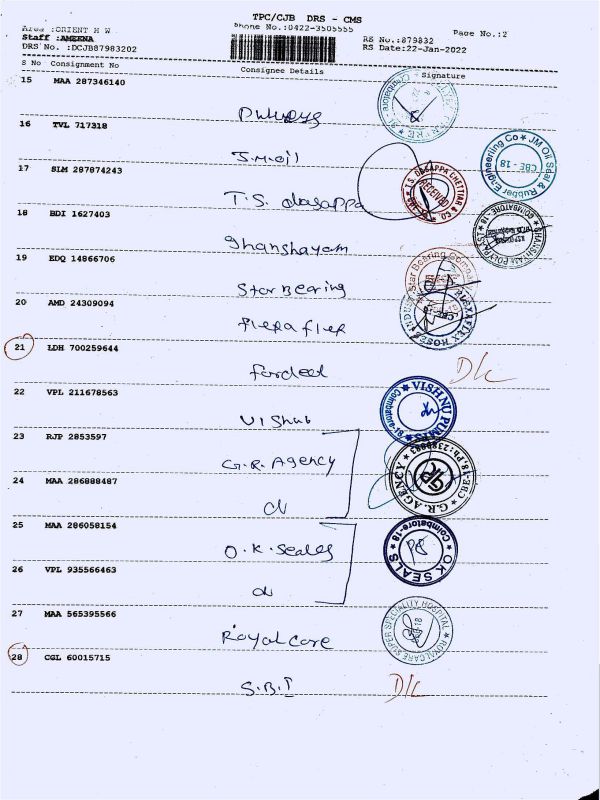 TPC/CJB DRS - CMS
Area :ORIENT H W
Phone No.:0422-3505555
Page No.:2
Staff :AMEENA
RS No.:879832
DRS No. :DCJB87983202
RS Date:22-Jan-2022
S No Consignment No Consignee Details Signature
15 MAA 287346140
16 TVL 717318
J.M.oil
JM Oil Seal & Rubber Engineering Co
CBE-18
17 SLM 287874243
T.S. obasappa
T.S. OBASAPPA CHETTIAR & CO.
RECEIVED
18 BDI 1627403
Ghanshayam
GHANSHYAM POLYPLAST
COIMBATORE - 18
19 EDQ 14866706
Star Bearing
Star Bearing Company
20 AMD 24309094
FLEXAFLEX HOSES INDUST
21 LDH 700259644
D/C
22 VPL 211678563
Vishnu
VISHNU PUMPS
Coimbatore-18
23 RJP 2853597
G.R. Agency
G.R. AGENCY
CBE-18.
24 MAA 286888487
25 MAA 286058154
O.K. Seales
OK SEALS
Coimbatore-18
26 VPL 935566463
27 MAA 565395566
Royal care
ROYALCARE SUPER SPECIALITY HOSPITAL
28 CGL 60015715
S.B.I
D/C